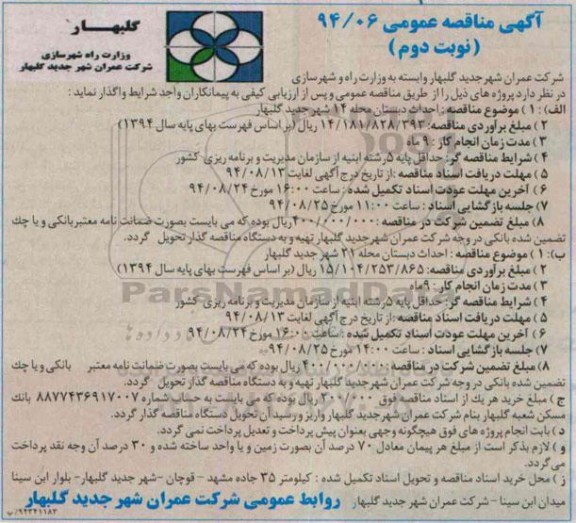 آگهی مناقصه عمومی ۹۴/۰۶
(نوبت دوم)
گلبهار
وزارت راه شهرسازی
شرکت عمران شهر جدید گلبهار
شرکت عمران شهر جدید گلبهار وابسته به وزارت راه و شهرسازی
در نظر دارد پروژه های ذیل را از طریق مناقصه عمومی و پس از ارزیابی کیفی به پیمانکاران واجد شرایط واگذار نماید :
الف) : ۱ ) موضوع مناقصه : احداث دبستان محله ۱۴ شهر جدید گلبهار
۲ ) مبلغ برآوردی مناقصه: ۱۴/۱۸۱/۸۲۸/۳۹۳ ریال (بر اساس فهرست بهای پایه سال ۱۳۹۴)
۳ ) مدت زمان انجام کار : ۹ ماه
۴ ) شرایط مناقصه گر: حداقل پایه ۵ رشته ابنیه از سازمان مدیریت و برنامه ریزی کشور
۵ ) مهلت دریافت اسناد مناقصه : از تاریخ درج آگهی لغایت ۹۴/۰۸/۱۳
۶ ) آخرین مهلت عودت اسناد تکمیل شده : ساعت ۱۶:۰۰ مورخ ۹۴/۰۸/۲۴
۷ ) جلسه بازگشایی اسناد : ساعت ۱۱:۰۰ مورخ ۹۴/۰۸/۲۵
۸ ) مبلغ تضمین شرکت در مناقصه : ۴۰۰/۰۰۰/۰۰۰ ریال بوده که می بایست بصورت ضمانت نامه معتبر بانکی و یا چک
تضمین شده بانکی در وجه شرکت عمران شهر جدید گلبهار تهیه و به دستگاه مناقصه گذار تحویل گردد.
ب): ۱ ) موضوع مناقصه : احداث دبستان محله ۲۱ شهر جدید گلبهار
۲ ) مبلغ برآوردی مناقصه: ۱۵/۱۰۴/۲۵۳/۸۶۵ ریال (بر اساس فهرست بهای پایه سال ۱۳۹۴)
۳ ) مدت زمان انجام کار : ۹ ماه
۴ ) شرایط مناقصه گر: حداقل پایه ۵ رشته ابنیه از سازمان مدیریت و برنامه ریزی کشور
۵ ) مهلت دریافت اسناد مناقصه : از تاریخ درج آگهی لغایت ۹۴/۰۸/۱۳
۶ ) آخرین مهلت عودت اسناد تکمیل شده : ساعت ۱۶:۰۰ مورخ ۹۴/۰۸/۲۴
۷ ) جلسه بازگشایی اسناد : ساعت ۱۴:۰۰ مورخ ۹۴/۰۸/۲۵
۸ ) مبلغ تضمین شرکت در مناقصه : ۴۰۰/۰۰۰/۰۰۰ ریال بوده که می بایست بصورت ضمانت نامه معتبر بانکی و یا چک
تضمین شده بانکی در وجه شرکت عمران شهر جدید گلبهار تهیه و به دستگاه مناقصه گذار تحویل گردد.
ج ) مبلغ خرید هر یک از اسناد مناقصه فوق ۳۰۰/۶۰۰ ریال بوده که می بایست به حساب شماره ۸۸۷۷۴۳۶۹۱۷۰۰۷ بانک
مسکن شعبه گلبهار بنام شرکت عمران شهر جدید گلبهار واریز و رسید آن تحویل دستگاه مناقصه گذار گردد.
د ) بابت انجام پروژه های فوق هیچگونه وجهی بعنوان پیش پرداخت و تعدیل پرداخت نمی گردد.
و ) لازم بذکر است از مبلغ هر پیمان معادل ۷۰ درصد آن بصورت زمین و یا واحد ساخته شده و ۳۰ درصد آن وجه نقد پرداخت
می گردد.
ز ) محل خرید اسناد مناقصه و تحویل اسناد تکمیل شده : کیلومتر ۳۵ جاده مشهد - قوچان - شهر جدید گلبهار - بلوار ابن سینا
میدان ابن سینا - شرکت عمران شهر جدید گلبهار روابط عمومی شرکت عمران شهر جدید گلبهار
۹۴۳۴۱۱۸۳/پ
ParsNamadData